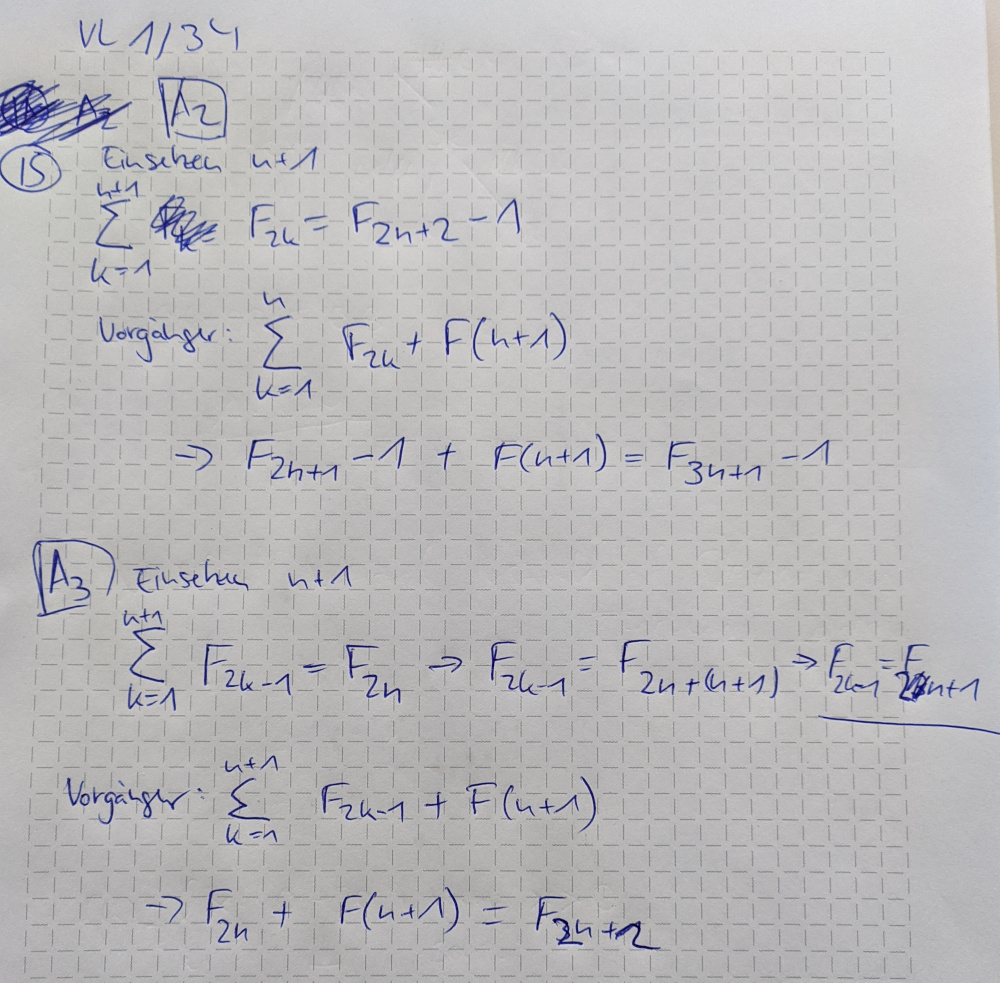 VL 1/34
A2
15 Einsetzen n+1
n+1 ∑ k=1 F_{2k} = F_{2n+2} - 1
Vorgänger: n ∑ k=1 F_{2k} + F(n+1)
→ F_{2n+1} - 1 + F(n+1) = F_{3n+1} - 1
A3 Einsetzen n+1
n+1 ∑ k=1 F_{2k-1} = F_{2n} → F_{2k-1} = F_{2n+(n+1)} → F_{2k-1} = F_{n+1}
Vorgänger: n+1 ∑ k=1 F_{2k-1} + F(n+1)
→ F_{2n} + F(n+1) = F_{3n+2}